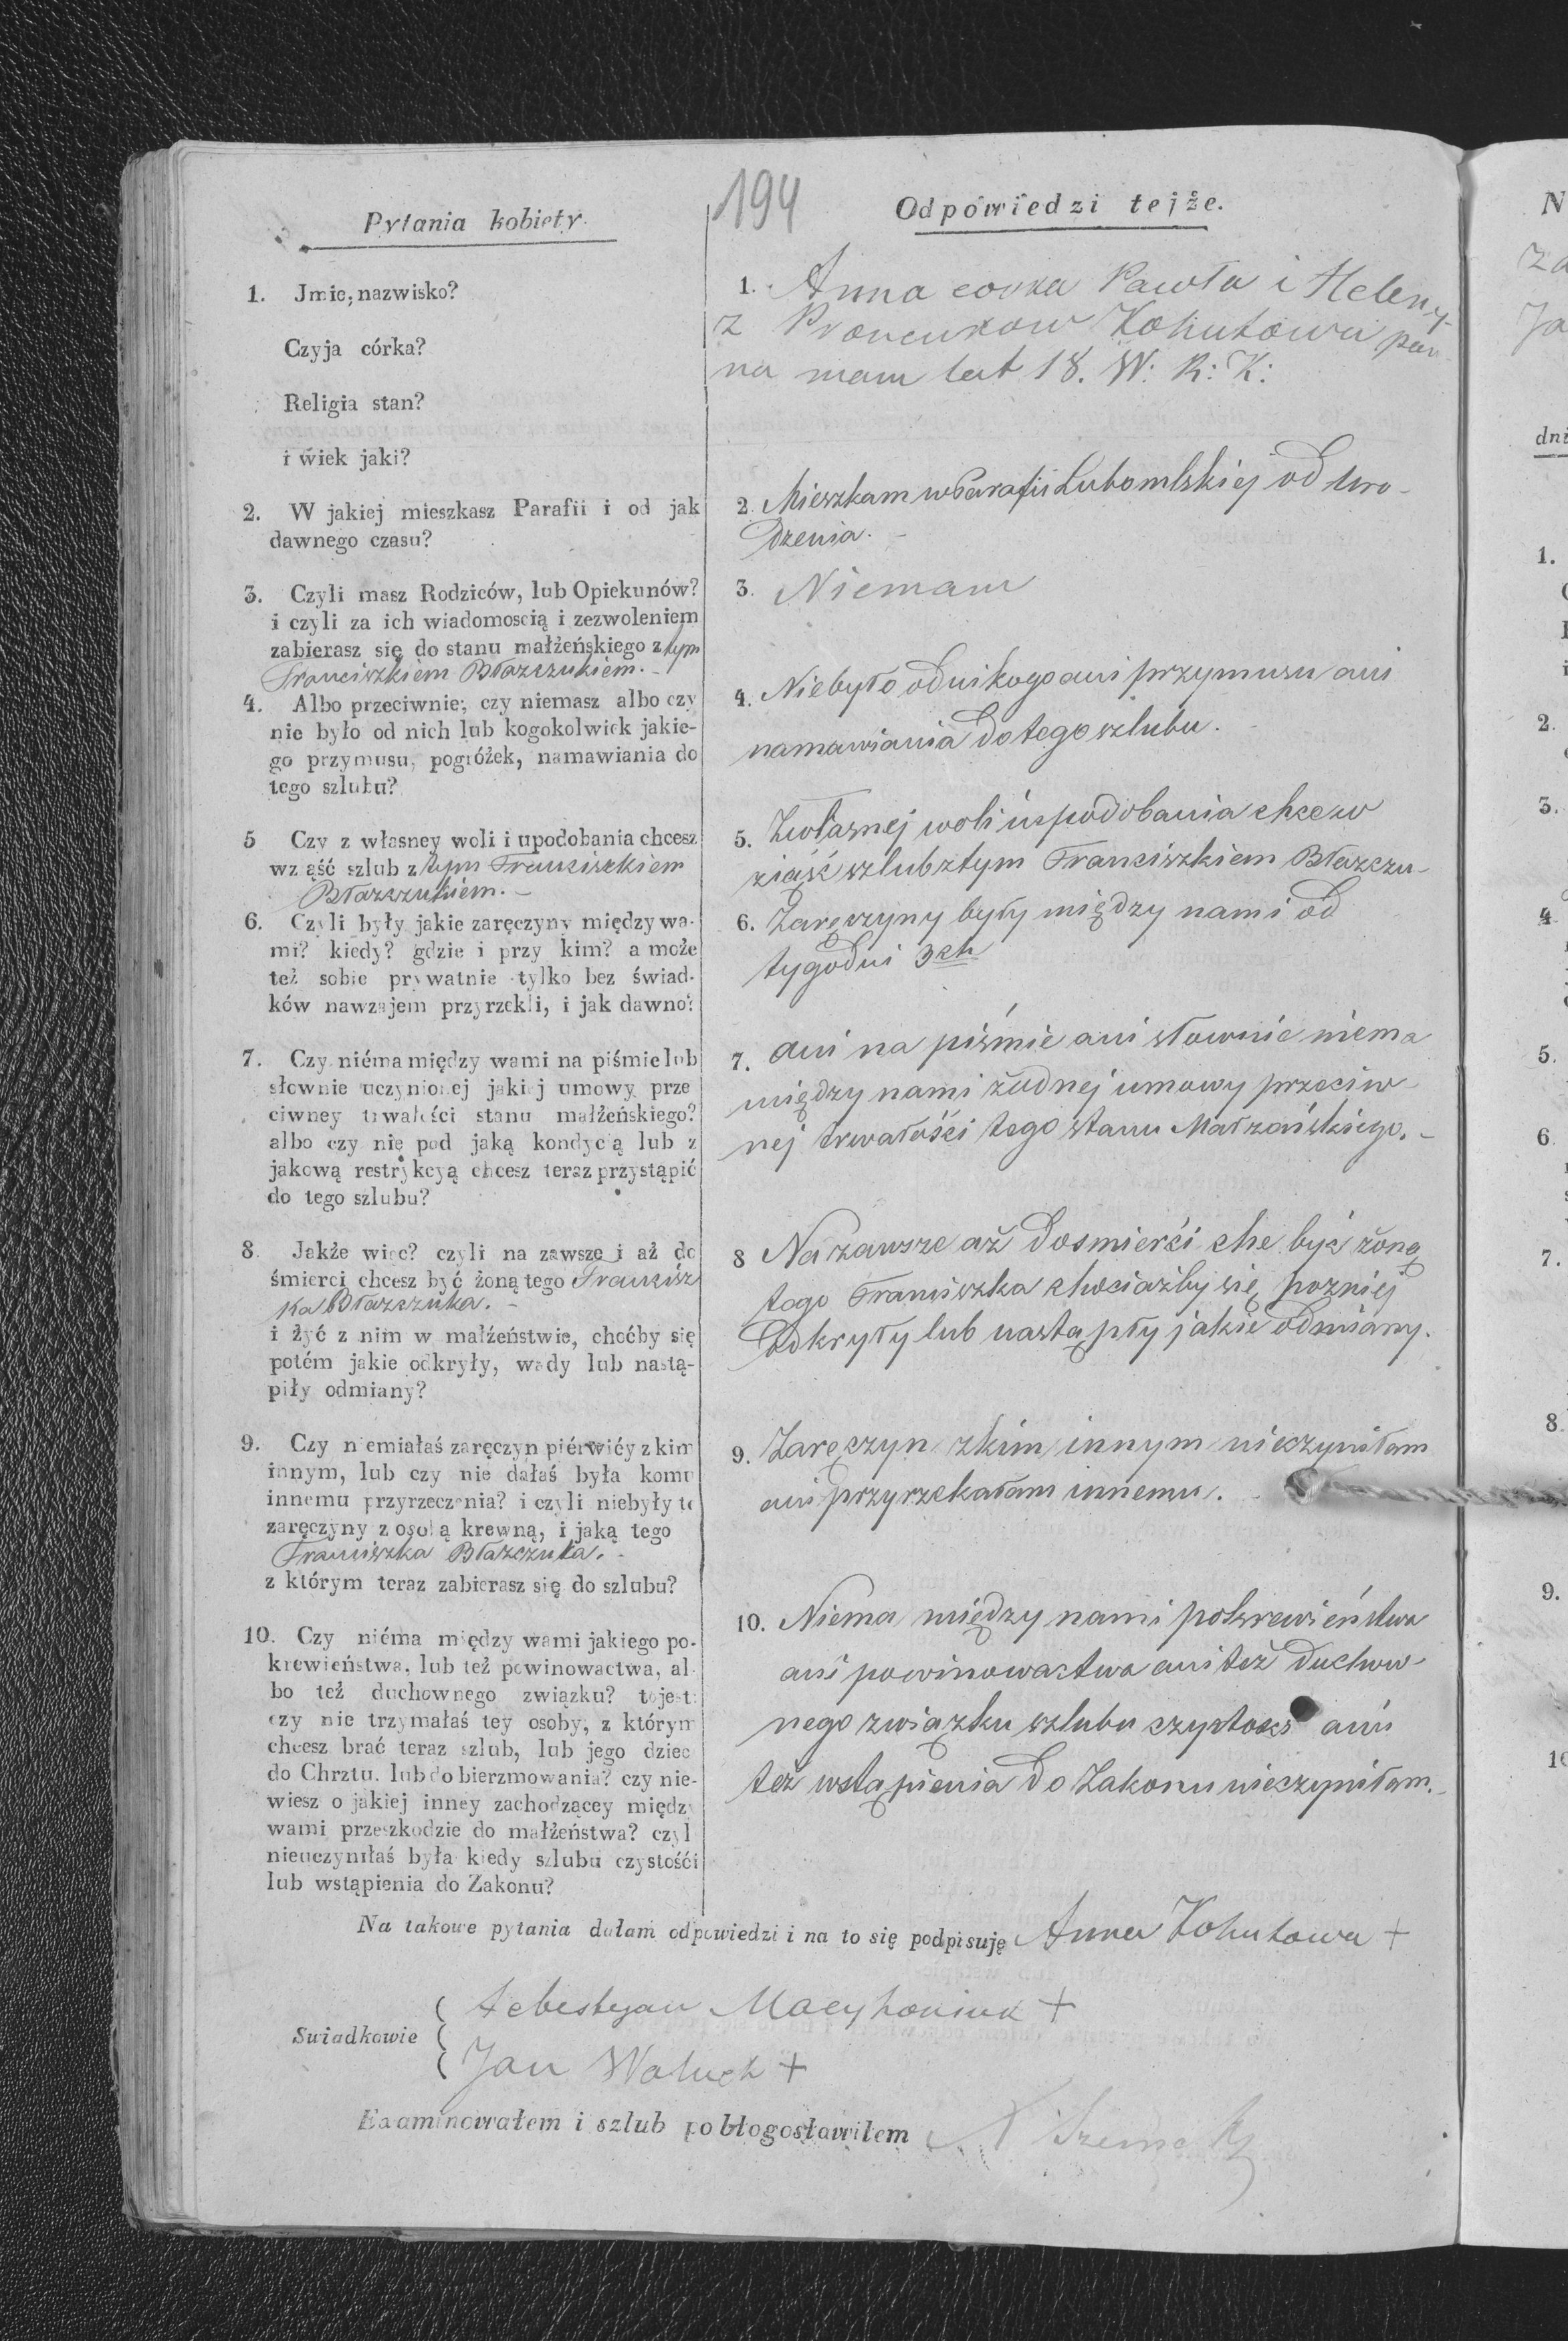 194
Pytania kobiety.
Odpowiedzi tejże.
1. Jmie, nazwisko?
Czyja córka?
Religia stan?
i wiek jaki?
1. Anna corka Pawła i Heleny
z Kohutowa pan-
na mam lat 18. W: R: K:
2. W jakiej mieszkasz Parafii i od jak
dawnego czasu?
2. Mieszkam w Parafii Lubomlskiej od Uro-
dzenia. -
3. Czyli masz Rodziców, lub Opiekunów?
i czyli za ich wiadomoscią i zezwoleniem
zabierasz się do stanu małżeńskiego z tym
Franciszkiem Błaszczukiem. -
3. Niemam
4. Albo przeciwnie; czy niemasz albo czy
nie było od nich lub kogokolwiek jakie-
go przymusu, pogróżek, namawiania do
tego szlubu?
4. Niebyło odnikogo ani przymusu ani
namawiania do tego szlubu.
5 Czy z własney woli i upodobania chcesz
wziąść szlub z tym Franciszkiem
Błaszczukiem. -
5. Zwłasnej woli iupodobania chce w
ziąść szlub ztym Franciszkiem Błazczu-
6. Czyli były jakie zaręczyny między wa-
mi? kiedy? gdzie i przy kim? a może
też sobie prywatnie tylko bez świad-
ków nawzajem przyrzekli, i jak dawno?
6. Zaręczyny były między nami od
tygodni 3ch
7. Czy niéma między wami na piśmie lub
słownie uczynionej jakiej umowy prze
ciwney trwałości stanu małżeńskiego?
albo czy nie pod jaką kondycią lub z
jakową restrykcyą chcesz teraz przystąpić
do tego szlubu?
7. ani na piśmie ani słownie niema
między nami żadnej umowy przeciw-
nej trwałości tego stanu Małżańskiego. -
8. Jakże więc? czyli na zawsze i aż do
śmierci chcesz być żoną tego Francisz
ka Błaszczuka. -
i żyć z nim w małżeństwie, choćby się
potém jakie odkryły, wady lub nastą-
piły odmiany?
8 Na zawsze aż do smierći che być żoną
tego Franciszka chociażby się pozniej
odkryły lub nastąpły jakie odmiany.
9. Czy niemiałaś zaręczyn piérwićy z kim
innym, lub czy nie dałaś była komu
innemu przyrzeczenia? i czyli niebyły te
zaręczyny z osobą krewną, i jaką tego
Franciszka Błazczuka. -
z którym teraz zabierasz się do szlubu?
9. Zaręczyn zkim innym nieczyniłam
ani przyrzekałam innemu. -
10. Czy niéma między wami jakiego po-
krewieństwa, lub też powinowactwa, al-
bo też duchownego związku? tojest:
czy nie trzymałaś tey osoby, z którym
chcesz brać teraz szlub, lub jego dziec
do Chrztu, lub do bierzmowania? czy nie-
wiesz o jakiej inney zachodzącey między
wami przeszkodzie do małżeństwa? czyl
nieuczyniłaś była kiedy szlubu czystośći
lub wstąpienia do Zakonu?
10. Niema między nami pokrewieństwa
ani powinowactwa ani też duchow-
nego związku szlubu czystoś ani
też wstąpienia do Zakonu nieczyniłam. -
Na takowe pytania dałam odpowiedzi i na to się podpisuję Anna Kohutowa +
Swiadkowie
Sebestyan +
Jan Waluch +
Examinowałem i szlub pobłogosławiłem